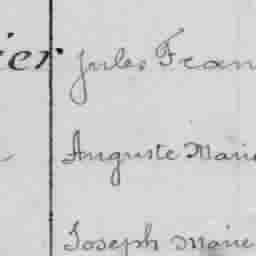 ier Jules Fran
Auguste Marie
Joseph Marie